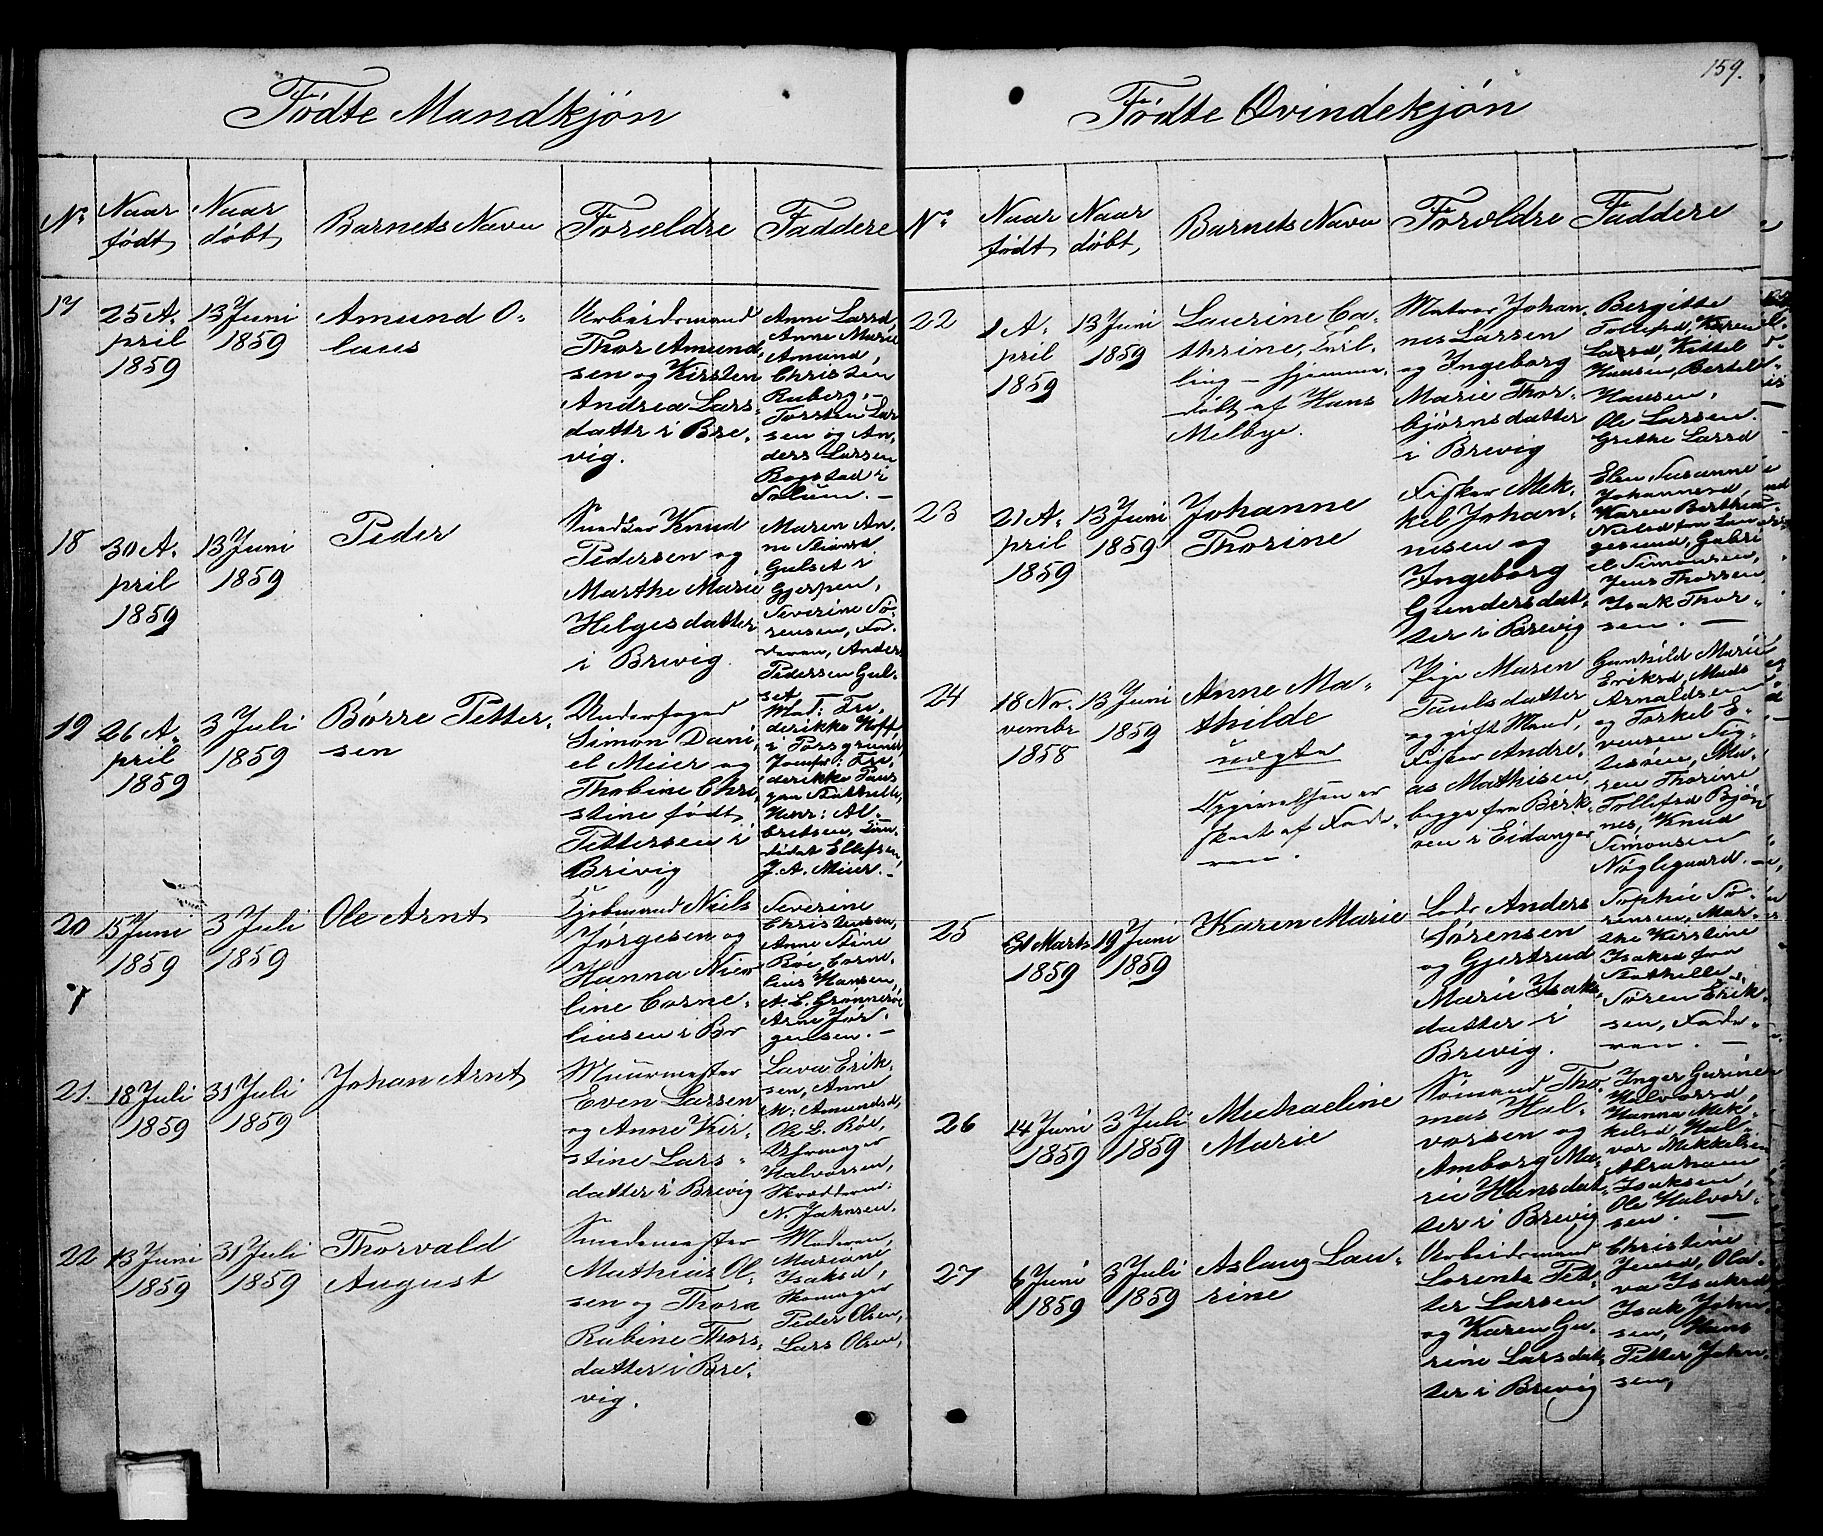 159.
Fødte Mandkjøn
No
Naar født
Naar døbt
Barnets Navn
Forældre
Faddere
17
25 A-
pril
1859
13 Juni
1859
Amund O-
laus
Arbeidsmand
Thor Amund-
sen og Kirsten
Andrea Lars-
datter i Bre-
vig.
Anne Larsd,
Anne Marie
Amund,
Christen
Ruberg, -
Torsten Lar
sen og An-
ders Larsen
Bogstad i
Solum. -
18
30 A-
pril
1859
13 Juni
1859
Peder
Snedker Knud
Pedersen og
Marthe Marie
Helgesdatter
i Brevig.
Maren An-
ne
Gulset i
Gjerpen,
Severine Sö-
rensen, Fa-
deren, Anders
Pedersen Gul-
set
19
26 A-
pril
1859
3 Juli
1859
Börre Petter-
sen
Underfoged
Simon Dani-
el Meier og
Thobine Chri-
stine født
Pettersen i
Brevig
Mad: Fre-
derikke
i Porsgrund,
Jomfr: Fre-
derikke
Stathelle,
Herr: Al-
bertsen,
Ellefsen,
J. A. Meier. -
20
15 Juni
1859
3 Juli
1859
Ole Arnt
Kjøbmand Niels
Jørgesen og
Hanna Nico
line Corne-
liusen i Br
Severine
Christensen,
Anne Stine
Röe, Corne-
lius Hansen,
A. L. Grønneröe
Arne Jör-
gensen. -
21.
18 Juli
1859
31 Juli
1859
Johan Arnt
Muurmester
Even Larsen
og Anne Kir-
stine Lars-
datter i Brevig
Lava Erik-
sen, Anne
M: Amundsd,
Ole L. Röe,
Uhrmager
Halvorsen,
Skrædderen:
N. Jahnsen.
22
13 Juni
1859
31 Juli
1859
Thorvald
August
Smedemester
Mathias Ol-
sen og Thora
Rubine Thors-
datter i Bre-
vig.
Moderen,
Mariane
Isaksd,
Skomager
Peder Olsen,
Lars Olsen,
Fødte Qvindekjøn
No
Naar født
Naar døbt
Barnets Navn
Forældre
Faddere
22
1 A-
pril
1859
13 Juni
1859
Laurine Ca-
thrine, Tvil-
ling - hjemme-
døbt af Hans
Melbye.
Matros Johan-
nes Larsen
og Ingeborg
Marie Thor-
bjørnsdatter
i Brevig
Bergitte
Tollefsd, Karen
Larsd, Kittel
Hansen, Bertel
Hansen,
Ole Larsen.
Grethe Larsd
23
21 A-
pril
1859
13 Juni
1859
Johanne
Thorine
Fisker Mik-
kel Johan-
nesen og
Ingeborg
Gundersdat-
ter i Brevig
Elen Susanne
Johannesd
Karen Berthea
Nielsd fra Lan
gesund, Gabri
el Simonsen,
Jens Thorsen,
Isak Thor-
sen. -
24
18 No-
vembr
1858
13 Juni
1859
Anne Ma-
thilde
uægte
Opgivelsen er
skeet af Fade-
ren.
Pige Maren
Paulsdatter
og gift Mand,
Fisker Andre-
as Mathisen,
begge fra Birk-
øen i Eidanger
Gunhild Marie
Eriksd, Mads
Arnaldsen
og Torkel E-
vensen Sig-
tesøen, Ma-
ren Thorine
Tollefsd Bjön
nes, Knud
Simonsen
Nöglegaard. -
25
31 Marts
1859
19 Juni
1859
Karen Marie
Lods Anders
Sørensen
og Gjertrud
Marie Isaks-
datter i
Brevig.
Sophie Sö-
rensen, Mar-
the Kirstine
Isaksd fra
Stathelle
Søren Erik-
sen, Fade-
ren. -
26
14 Juni
1859
3 Juli
1859
Michaeline
Marie
Sømand Tho-
mas Hal-
vorsen og
Amborg Ma-
rie Hansdat-
ter i Brevig
Inger Gurine
Halvorsd,
Hanna Mik-
kelsd, Hal-
vor Mikkelsen
Abraham
Isaksen,
Ole Halvor-
sen. -
27
6 Juni
1859
3 Juli
1859
Aslaug Lau-
rine
Arbeidsmand
Lorents Pet-
ter Larsen
og Karen Gu-
rine Larsdat-
ter i Brevig
Christine
Jensd, Ola-
va Isaksd,
Isak John-
sen, Hans
Petter John-
sen,